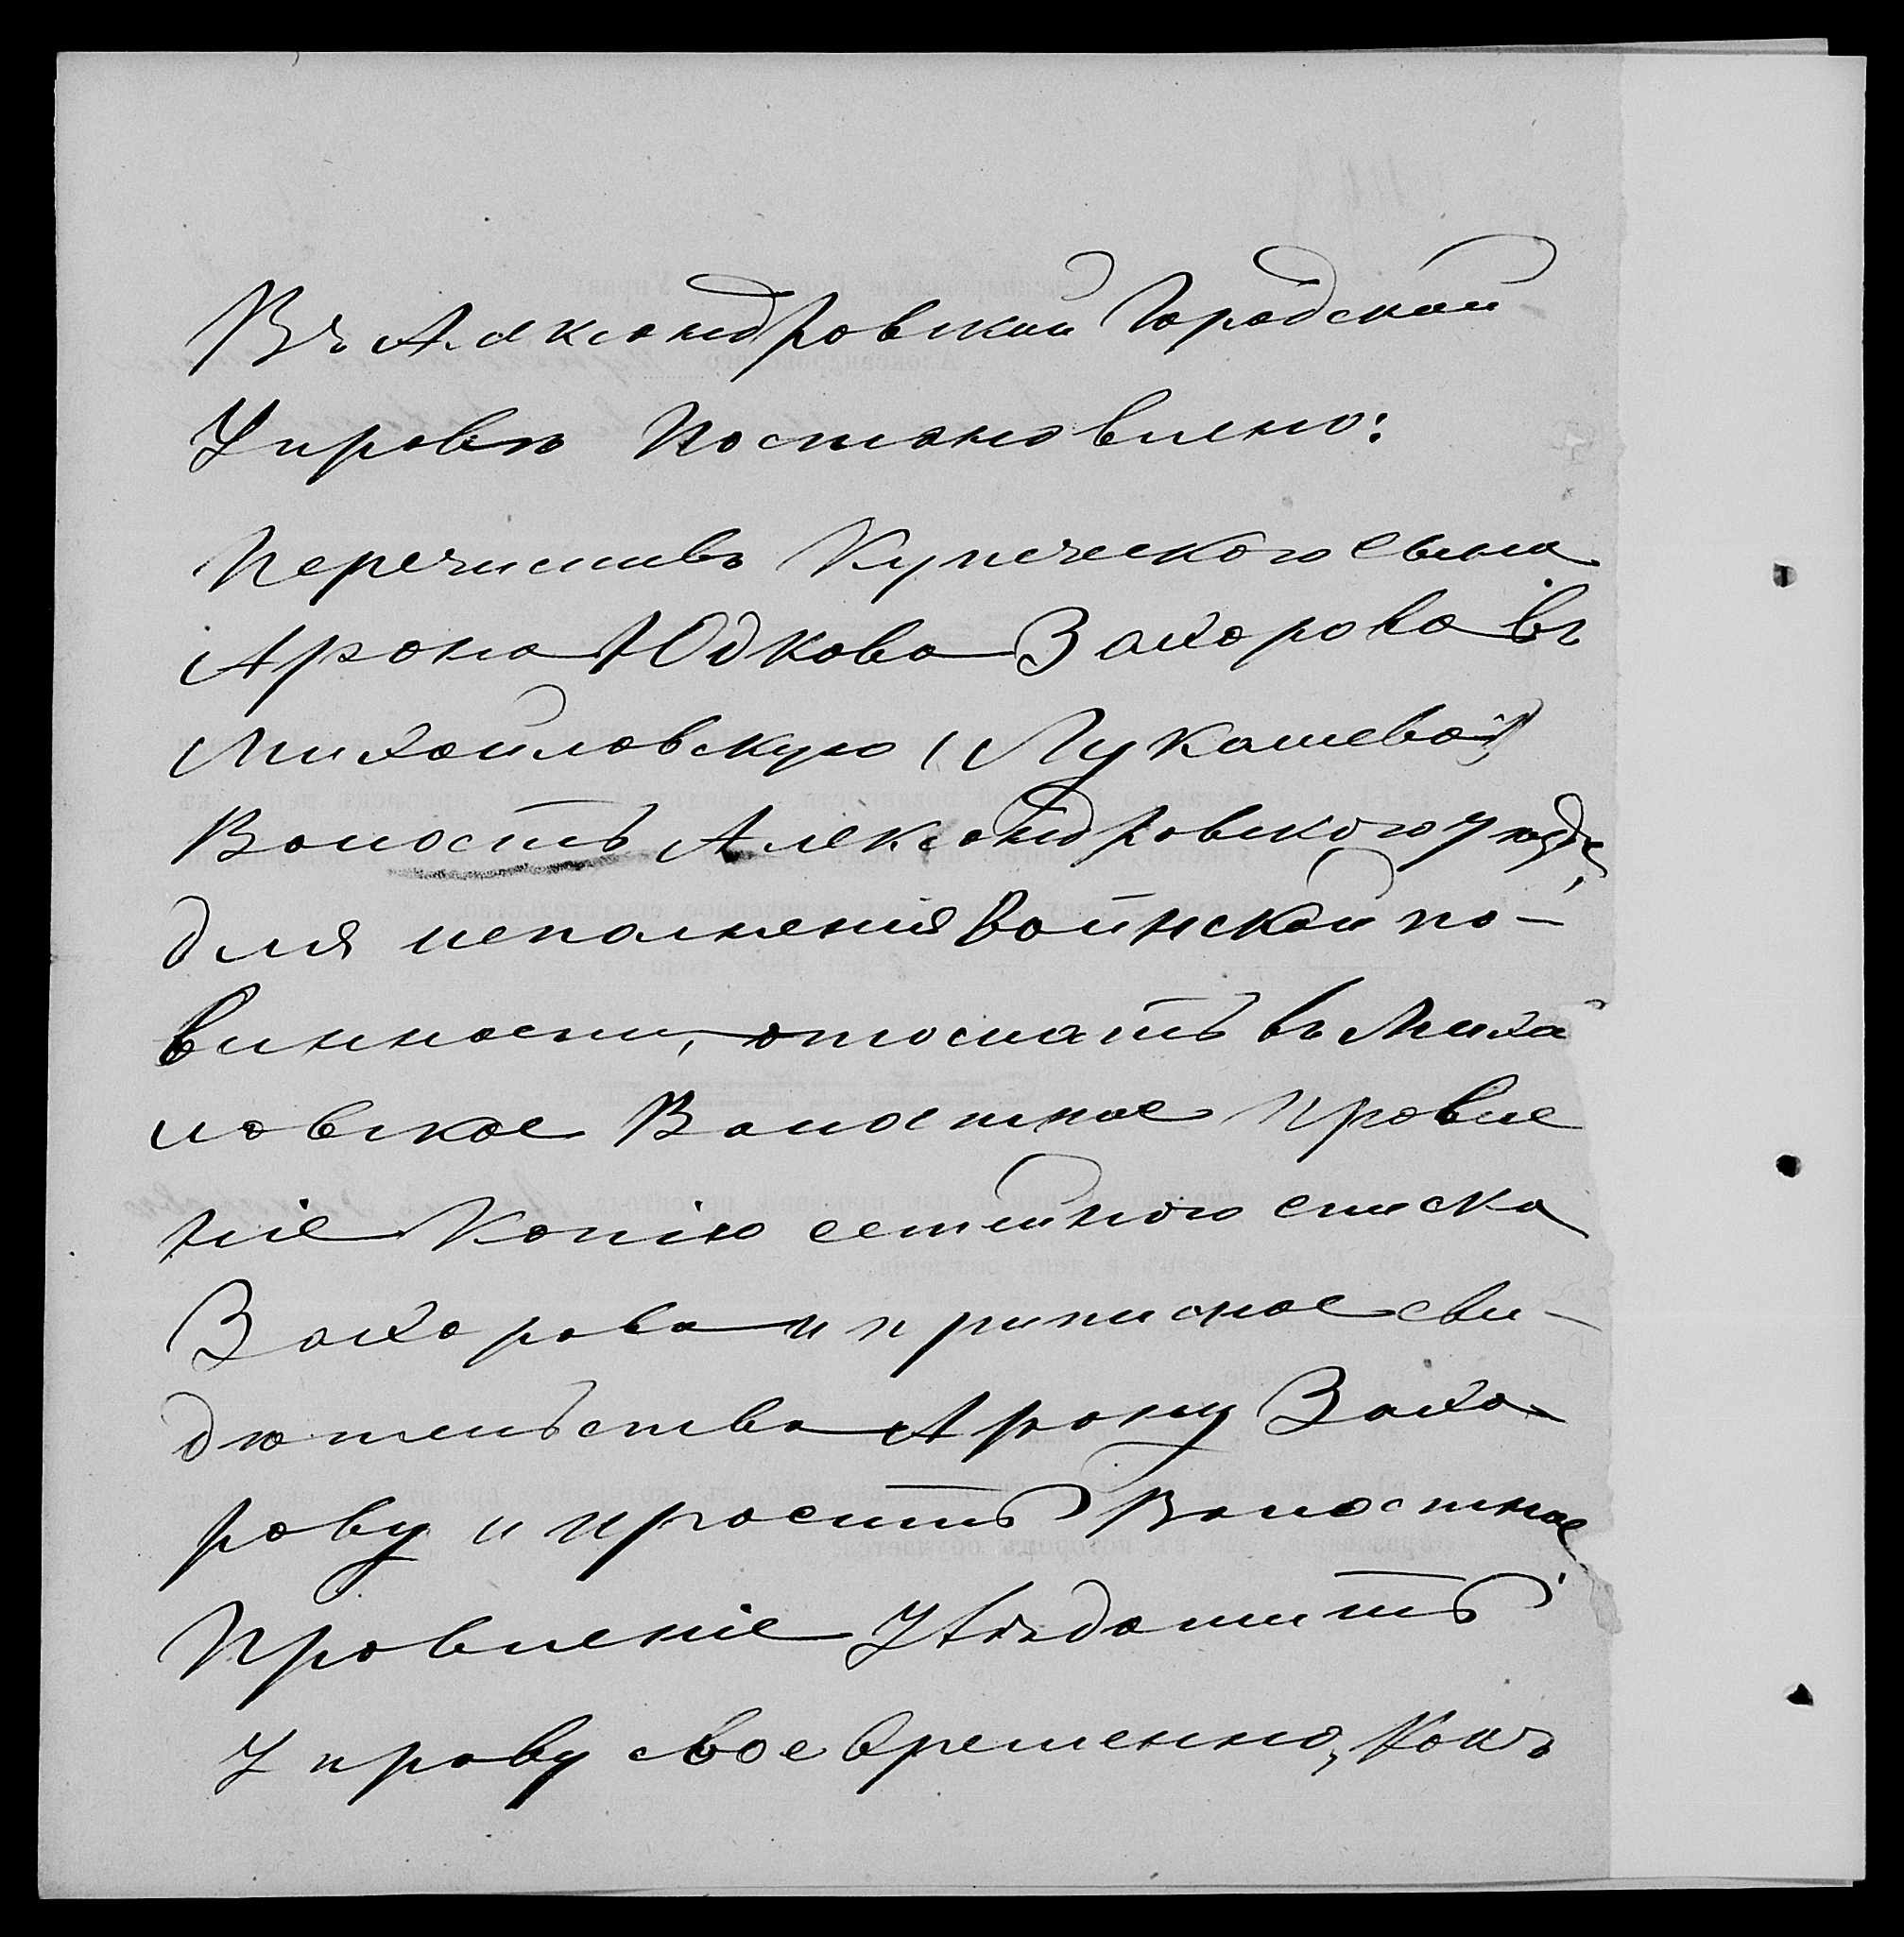 Въ Александровской Городской
Управѣ Постановлено:
Перечисливъ Купеческого сына
Арона Юдкова Захарова въ
Михайловскую (Лукашево)
Волость Александровского уѣзда,
для исполненія воинской по-
винности, отослать въ Михай
ловское Волостное Правле
ніе Копію семейного списка
Захарова и приписное сви-
дѣтельства Арону Заха-
рову и проситъ Волостное
Правленіе Увѣдомить
Управу своевременно, какъ